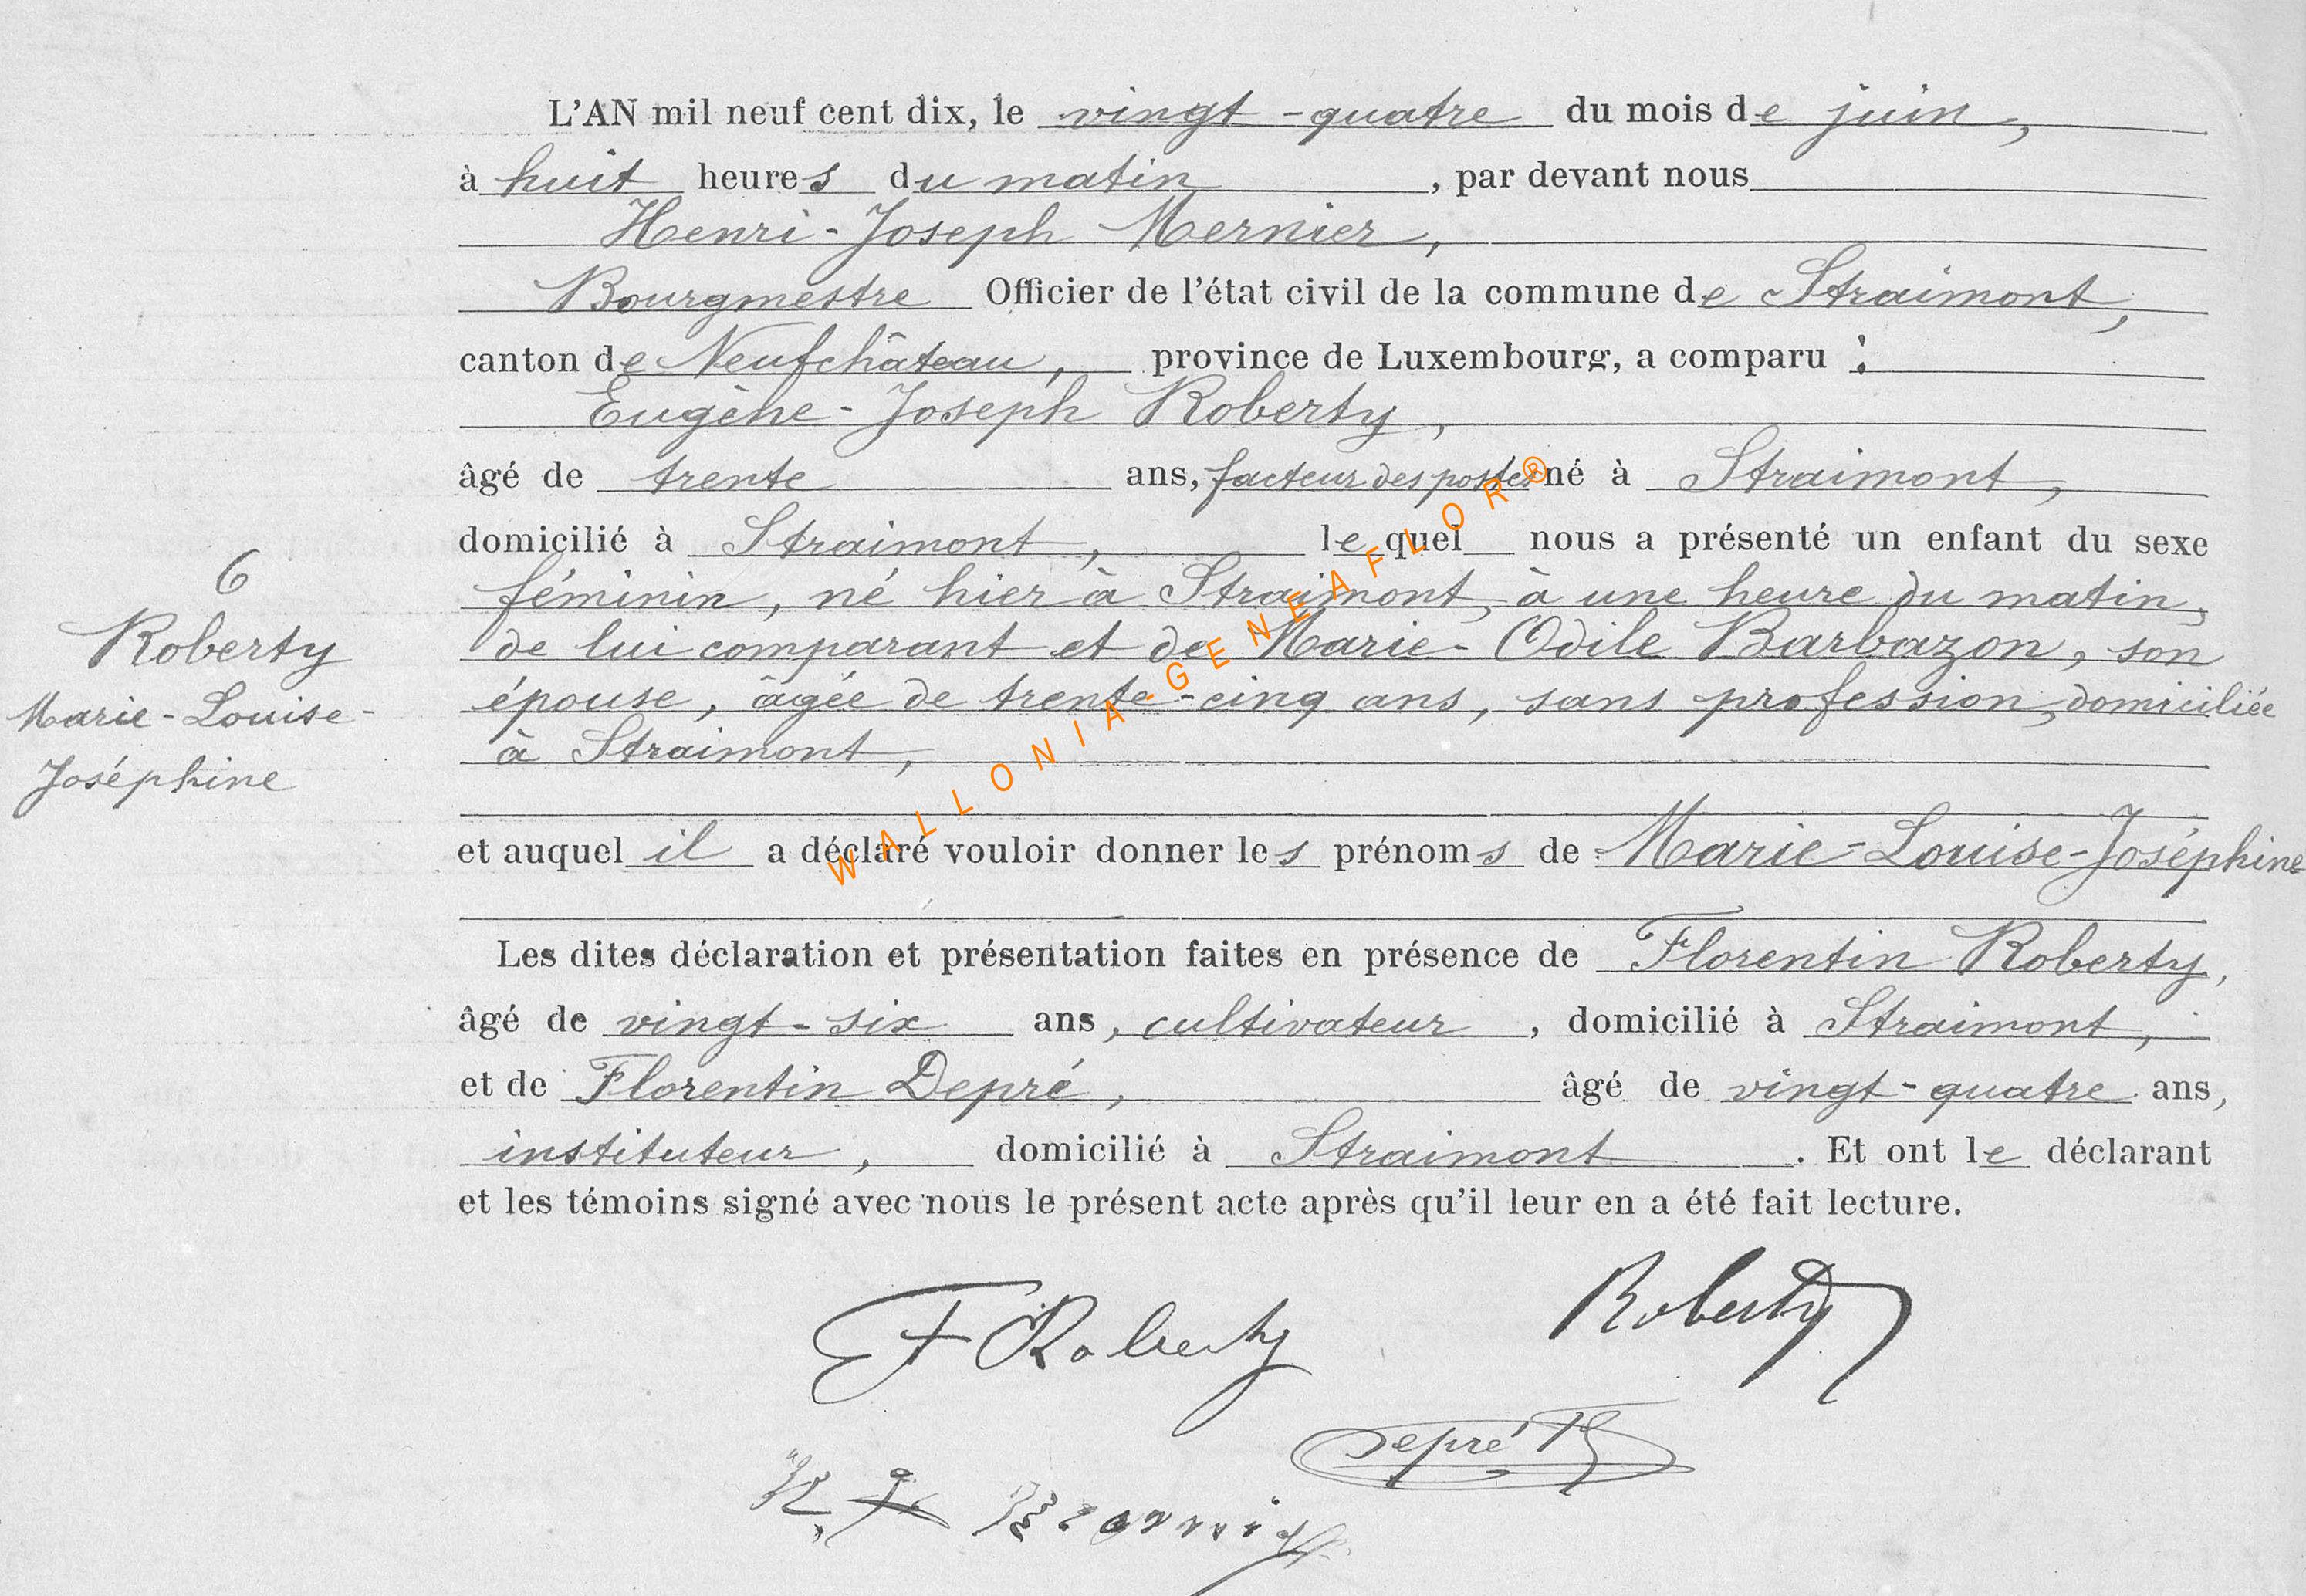 L'AN mil neuf cent dix, le vingt-quatre du mois de juin,
à huit heures du matin, par devant nous
Henri-Joseph Mernier,
Bourgmestre Officier de l'état civil de la commune de Straimont,
canton de Neufchâteau, province de Luxembourg, a comparu :
Eugène-Joseph Roberty,
âgé de trente ans, facteur des postes né à Straimont,
domicilié à Straimont, lequel nous a présenté un enfant du sexe
féminin, né hier à Straimont, à une heure du matin,
de lui comparant et de Marie-Odile Barbazon, son
épouse, âgée de trente-cinq ans, sans profession, domiciliée
à Straimont,
6
Roberty
Marie-Louise-
Joséphine
et auquel il a déclaré vouloir donner les prénoms de Marie-Louise-Joséphine
Les dites déclaration et présentation faites en présence de Florentin Roberty,
âgé de vingt-six ans, cultivateur, domicilié à Straimont,
et de Florentin Depré, âgé de vingt-quatre ans,
instituteur, domicilié à Straimont. Et ont le déclarant
et les témoins signé avec nous le présent acte après qu'il leur en a été fait lecture.
F Roberty Roberty
Depré F
WALLONIA-GENEAFLOR®